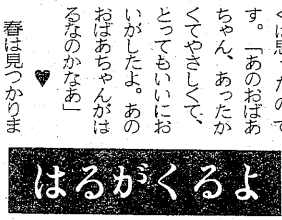 くは思ったので
す。「あのおばあ
ちゃん、あったか
くてやさしくて、
とってもいいにお
いがしたよ。あの
おばあちゃんがは
るなのかなあ」
♥
春は見つかりま
はるがくるよ